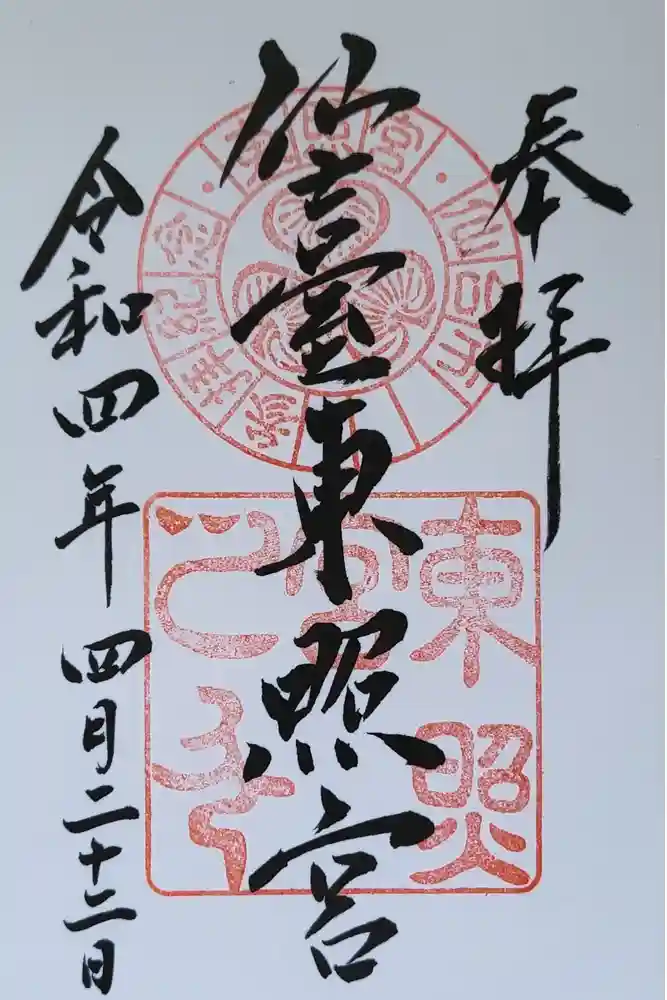 奉拝
仙臺東照宮
令和四年四月二十二日
東照宮
東照